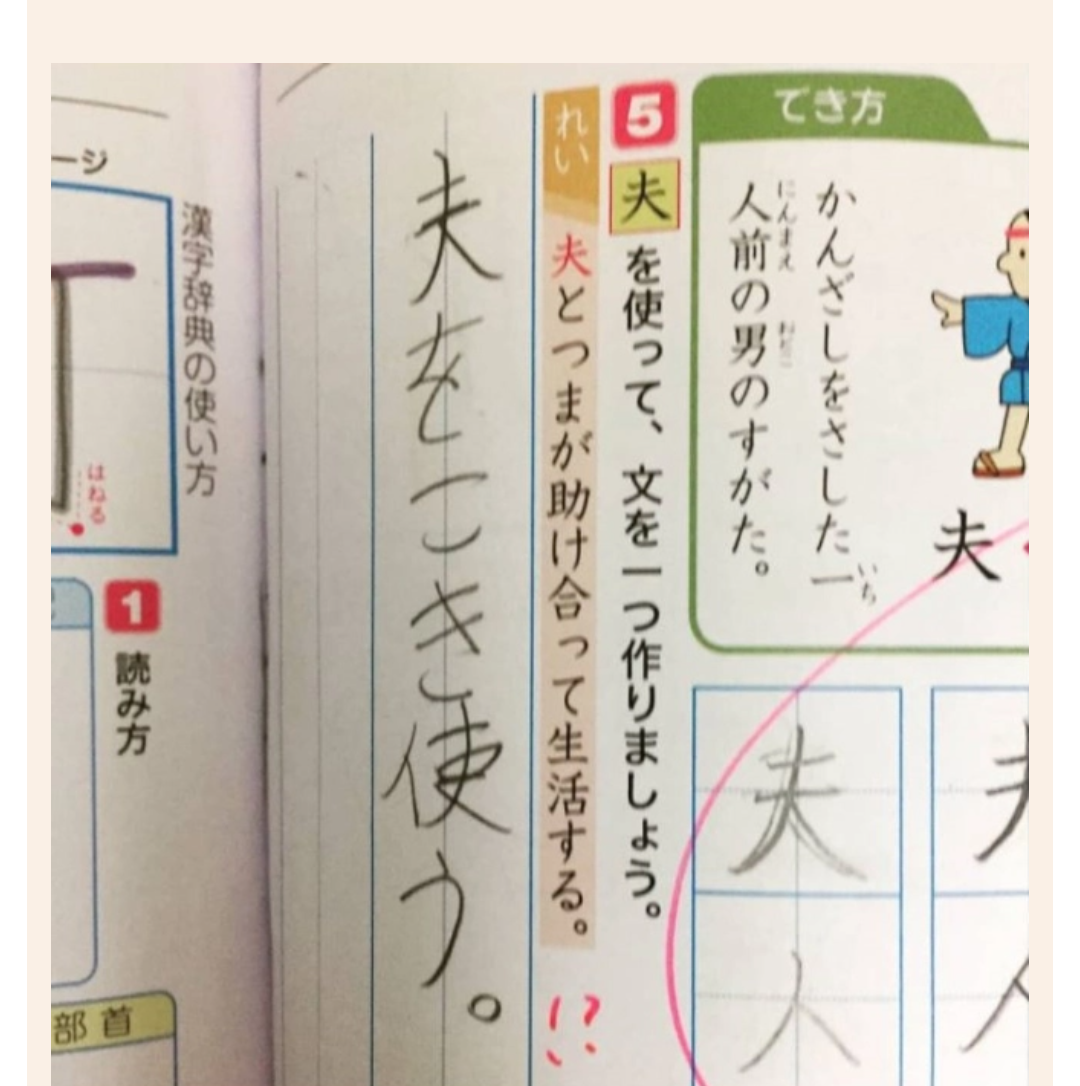 てき方
かんざしをさした一
いち
人前の男のすがた。
にんまえ おとこ
夫
夫
人
5 夫を使って、文を一つ作りましょう。
れい 夫とつまが助け合って生活する。
!?
夫をこき使う。
漢字辞典の使い方
1 読み方
ージ
はねる
部首